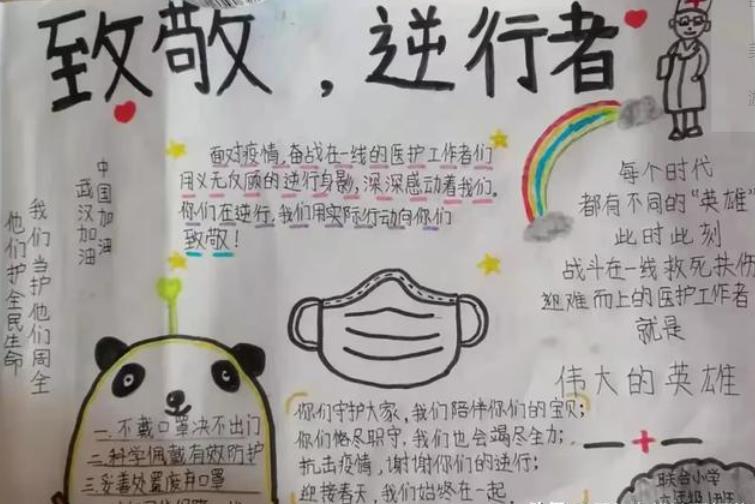 致敬，逆行者
面对疫情,奋战在一线的医护工作者们
用义无反顾的逆行身影,深深感动着我们。
你们在逆行,我们用实际行动向你们
致敬！
中国加油
武汉加油
我们当护他们周全
他们护全民生命
每个时代
都有不同的“英雄”
此时此刻
战斗在一线救死扶伤
迎难而上的医护工作者
就是
伟大的英雄
一.不戴口罩决不出门
二.科学佩戴有效防护
三.妥善处置废弃口罩
你们守护大家,我们陪伴你们的宝贝；
你们恪尽职守,我们也会竭尽全力；
抗击疫情,谢谢你们的逆行；
迎接春天,我们始终在一起
联合小学